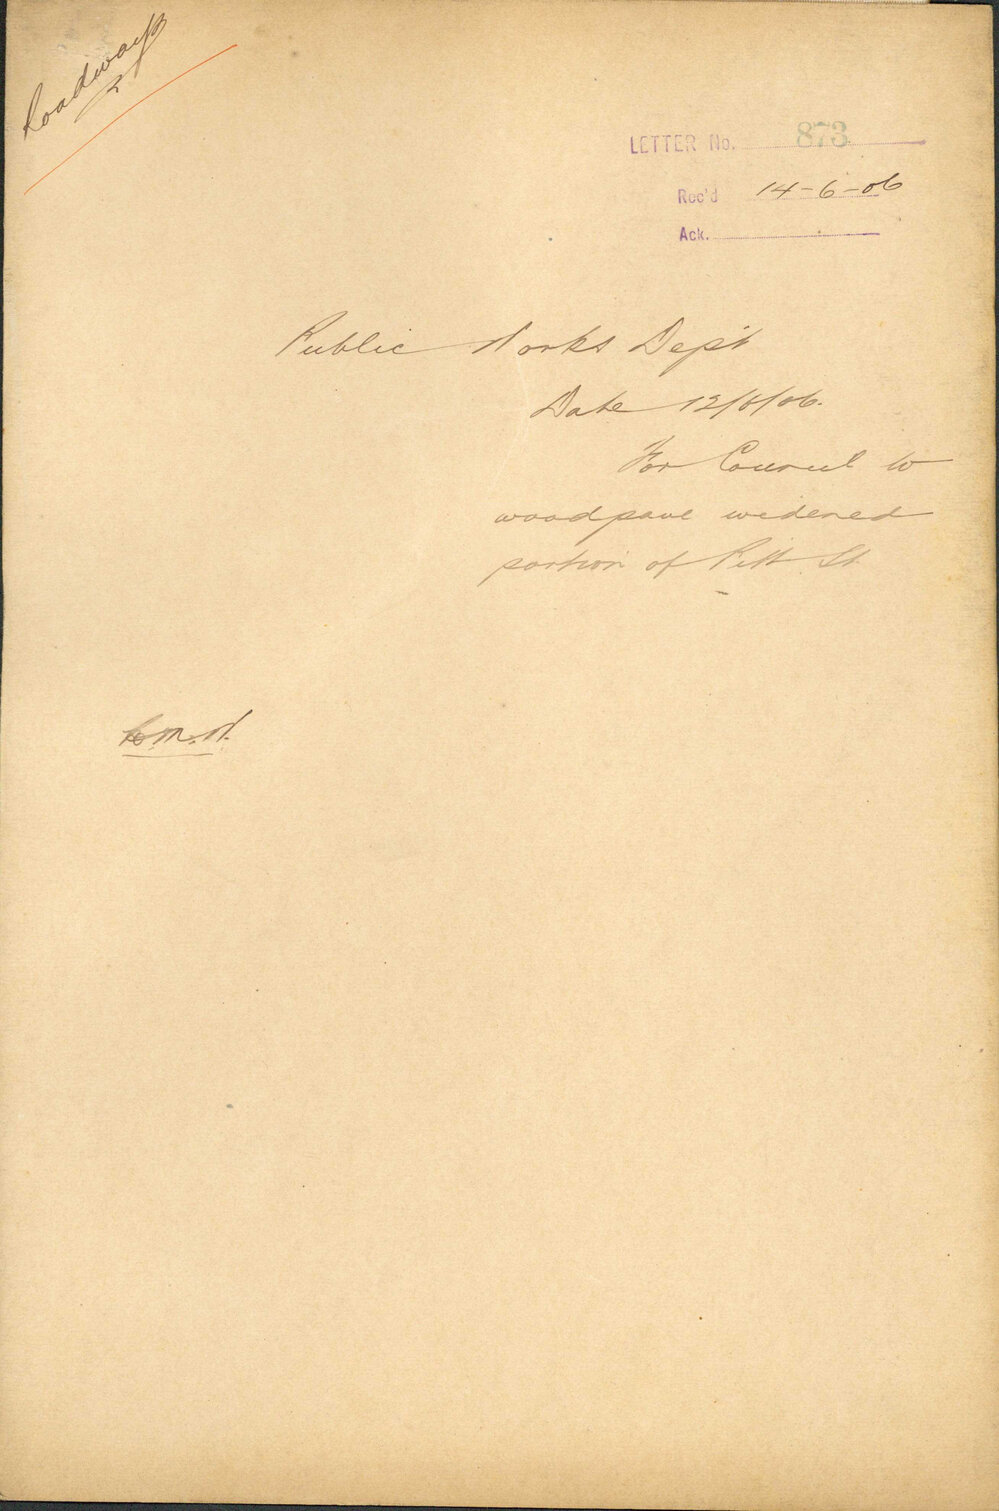 Roadways
LETTER No. 873
Rec'd 14-6-06
Ack.
Public Works Dep't
Date 12/6/06.
For Council to
woodpave widened
portion of Pitt St.